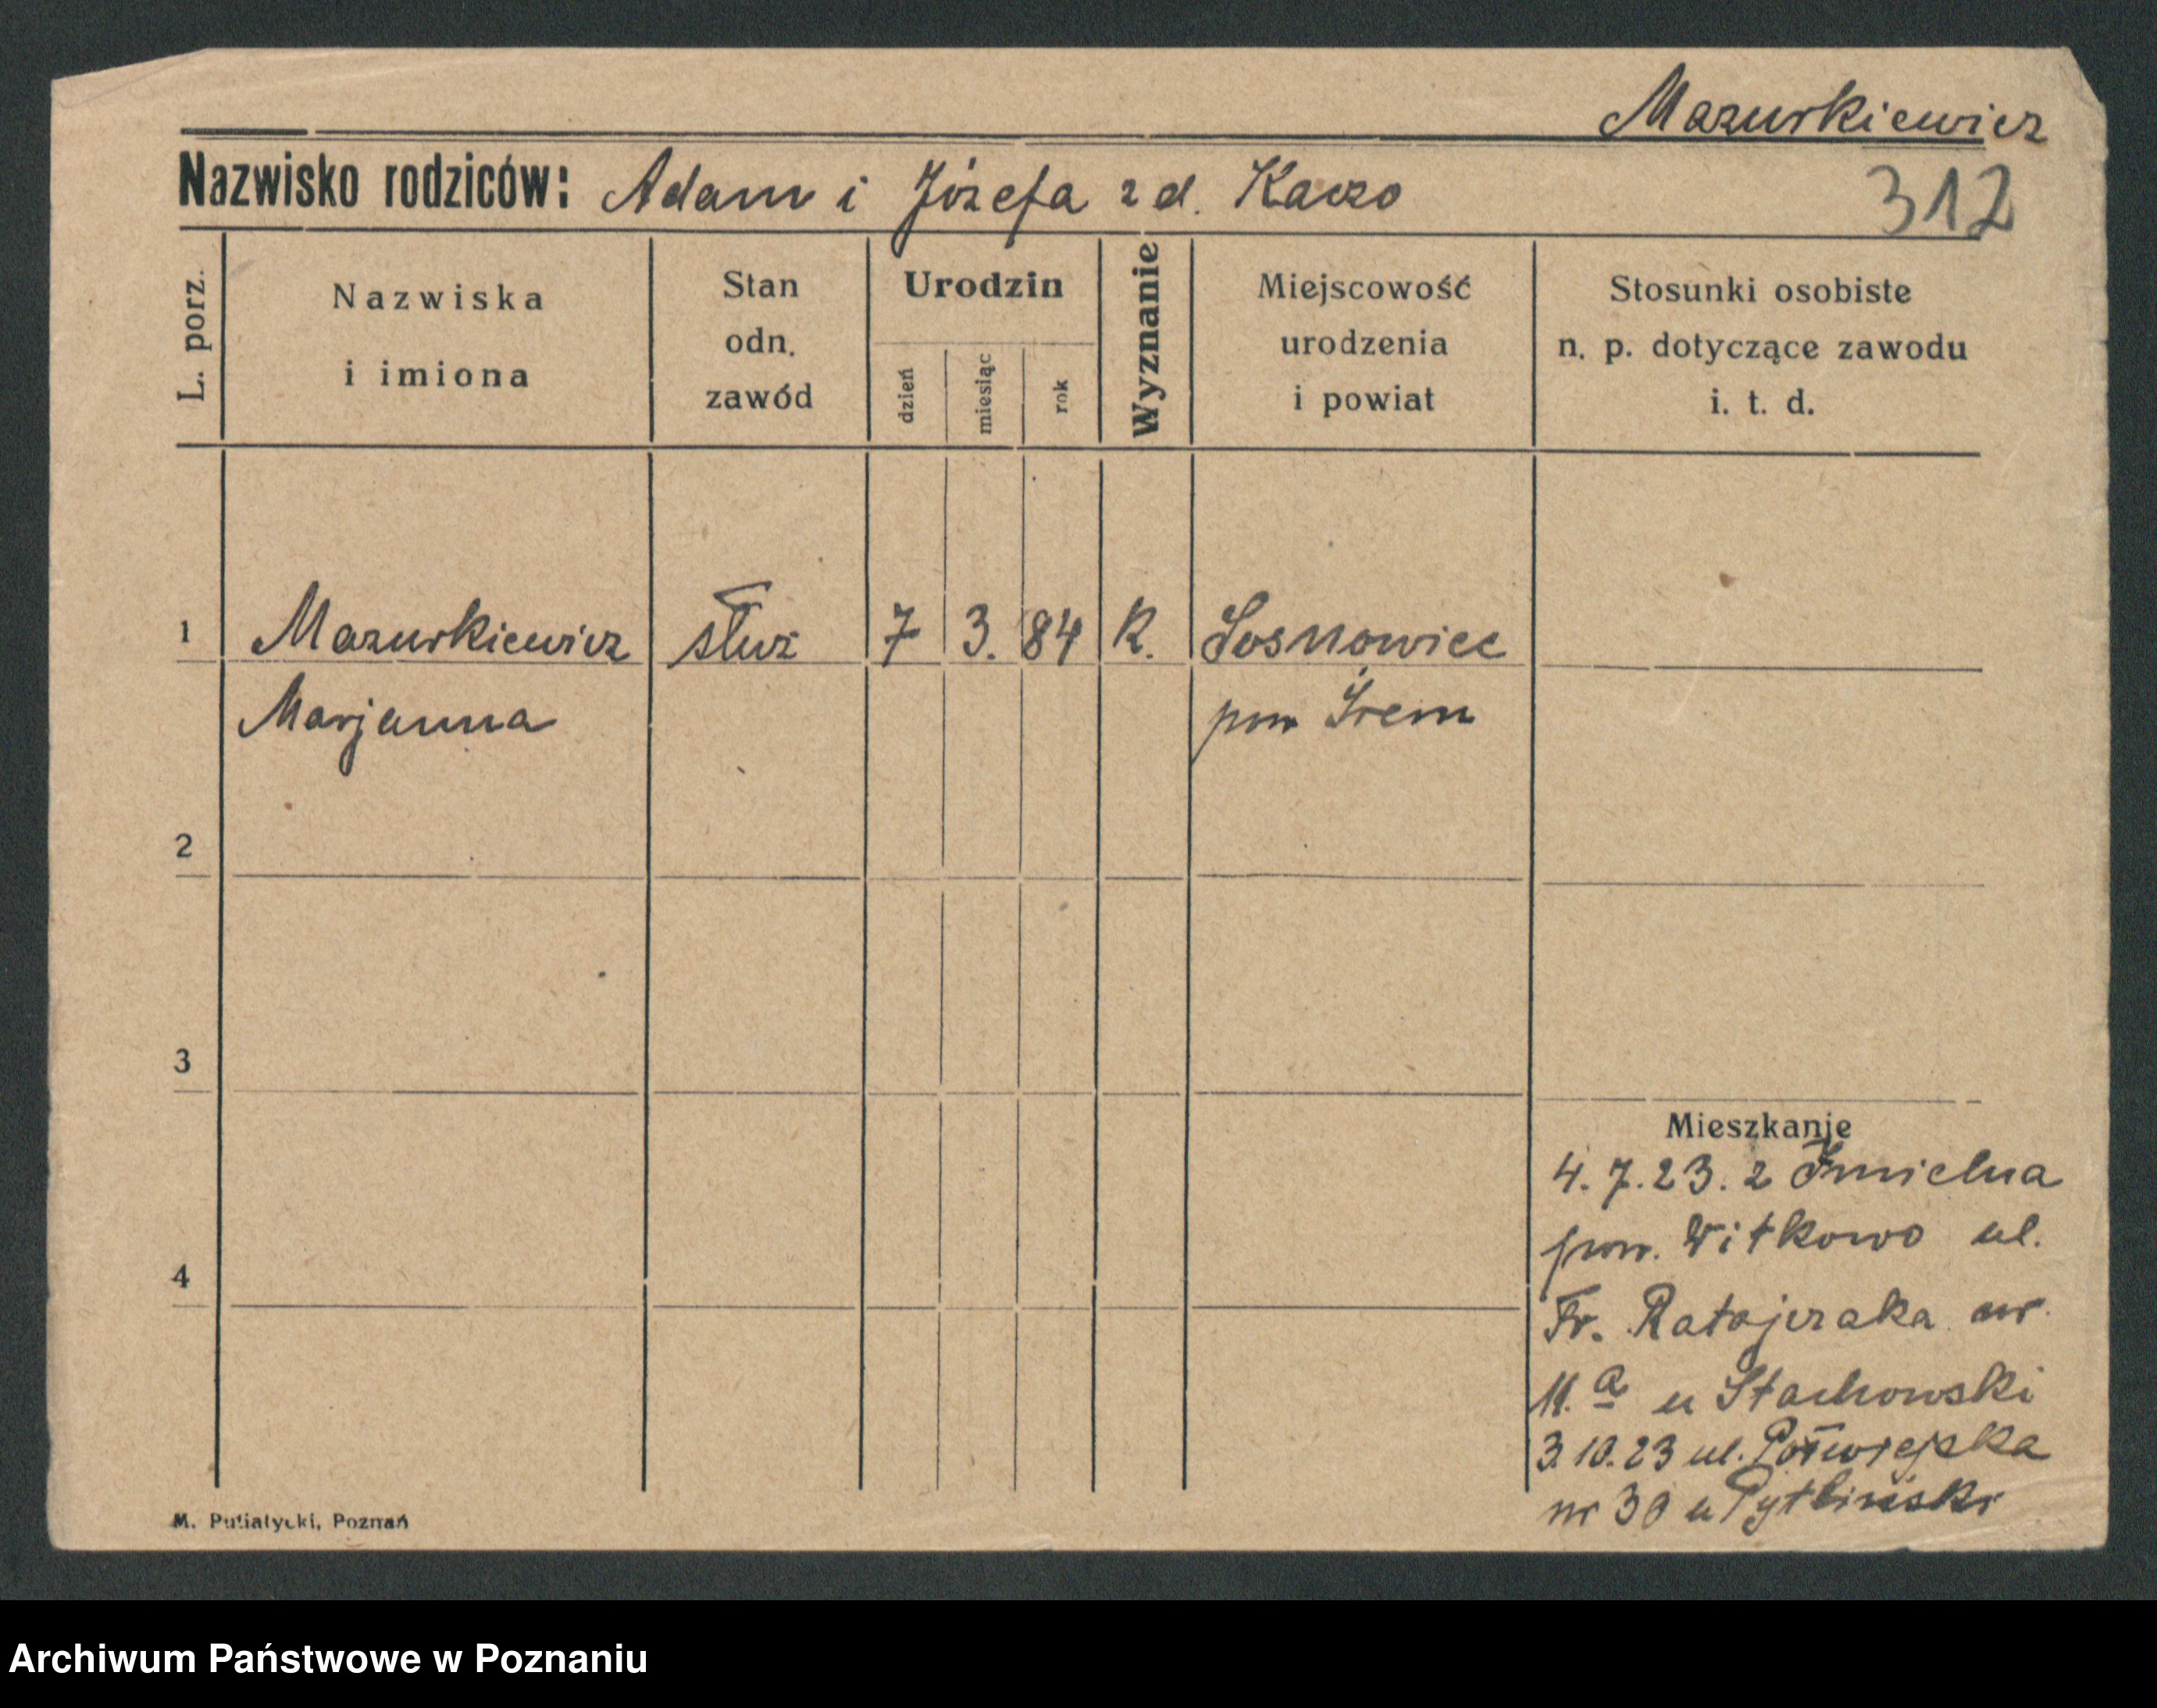 Mazurkiewicz
Nazwisko rodziców: Adam i Józefa z d. Kaczo
312
L. porz.
Nazwiska
i imiona
Stan
odn.
zawód
Urodzin
dzień
miesiąc
rok
Wyznanie
Miejscowość
urodzenia
i powiat
Stosunki osobiste
n. p. dotyczące zawodu
i. t. d.
1 Mazurkiewicz służ 7 3. 84 K. Sosnowiec
Marjanna pow Śrem
2
3
4
Mieszkanie
4. 7. 23. z
pow. Witkowo ul.
Fr. Ratajczaka nr.
11. a u Stachowski
3.10.23 ul. Półwiejska
nr 30 u Pytliński
M. Putiatycki, Poznań
Archiwum Państwowe w Poznaniu